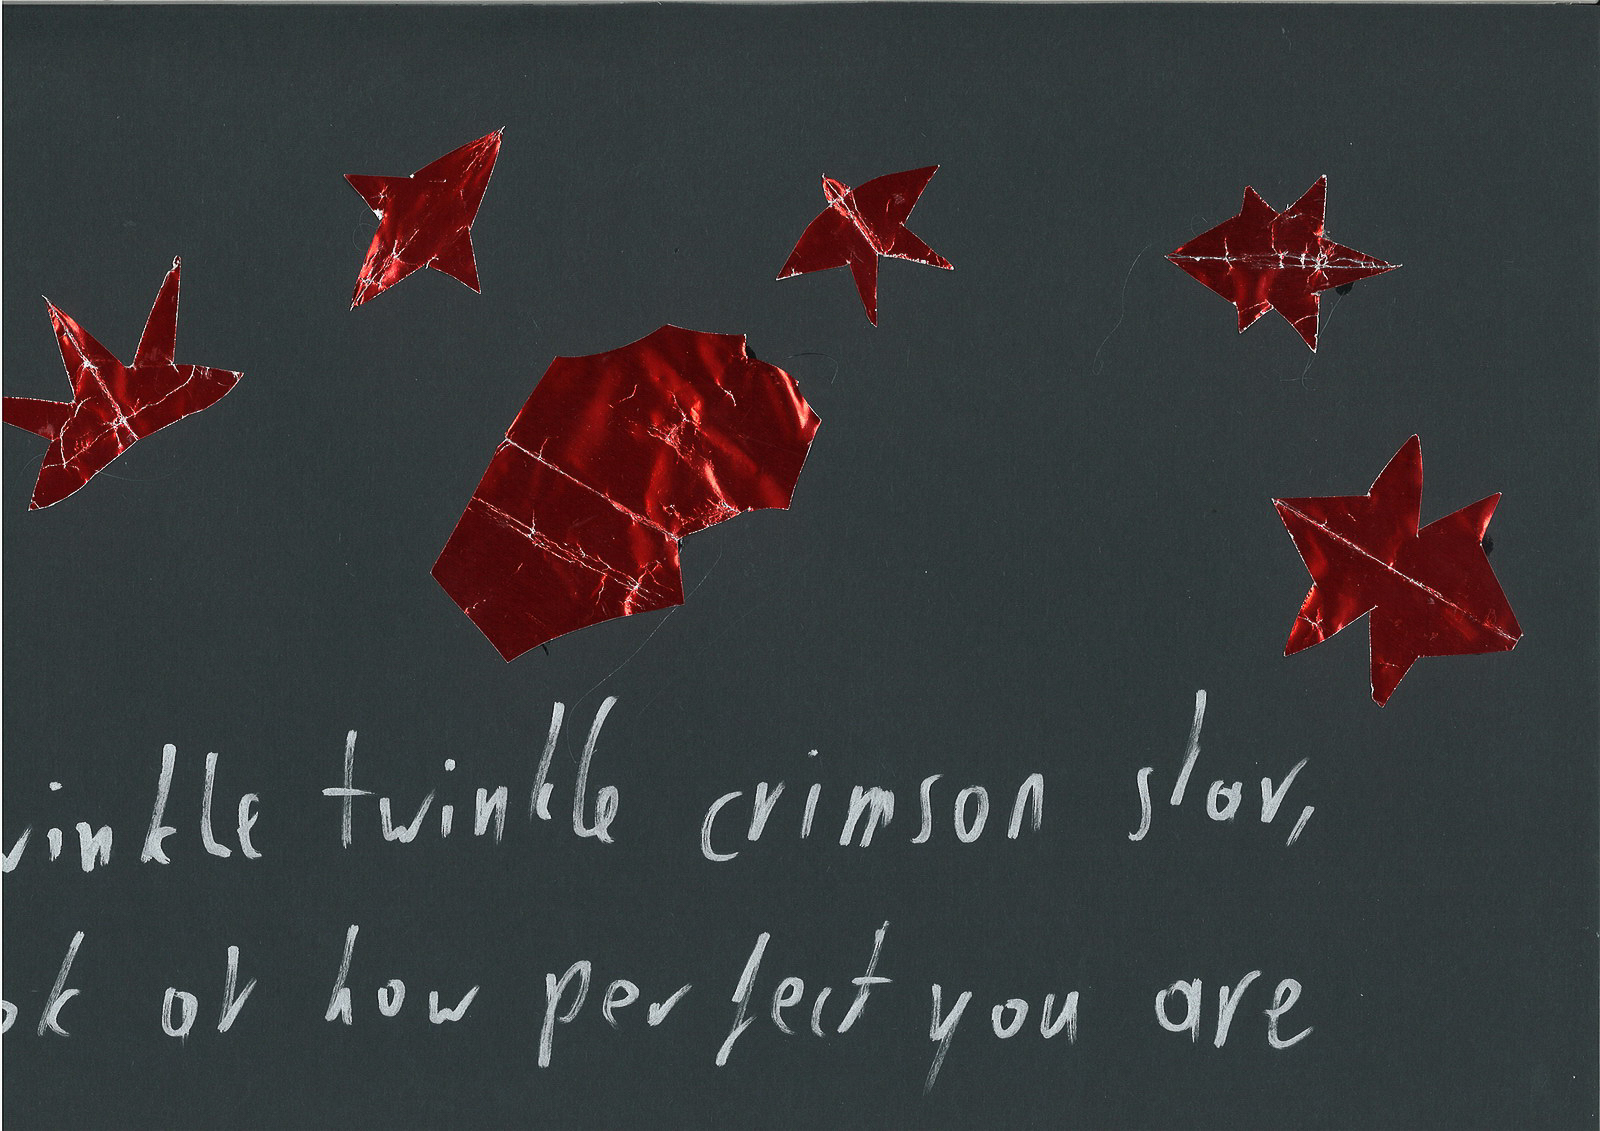 winkle twinkle crimson star,
ok at how perfect you are